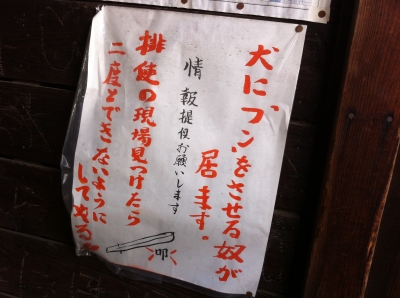 犬にフンをさせる奴が
居ます。
情報提供お願いします
排便の現場見つけたら
二度とできないように
してやる
叩